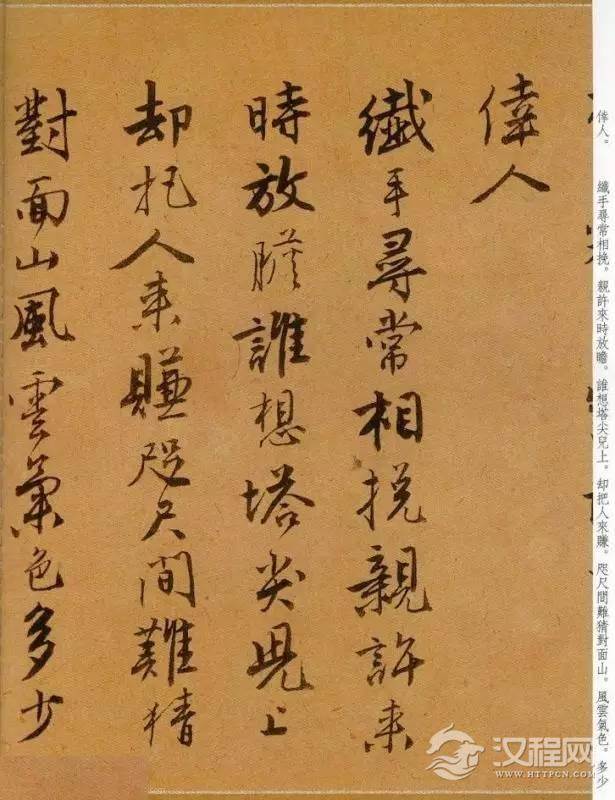 偉人。　纖手尋常相挽。親許來時放瞻。誰想塔尖兒上。却把人來賺。咫尺間難猜對面山。風雲氣色。多少
偉人
纖手尋常相挽親許来
時放膽誰想塔尖兒上
却把人来賺咫尺間難猜
對面山風雲氣色多少
汉程网
WWW.HTTPCN.COM